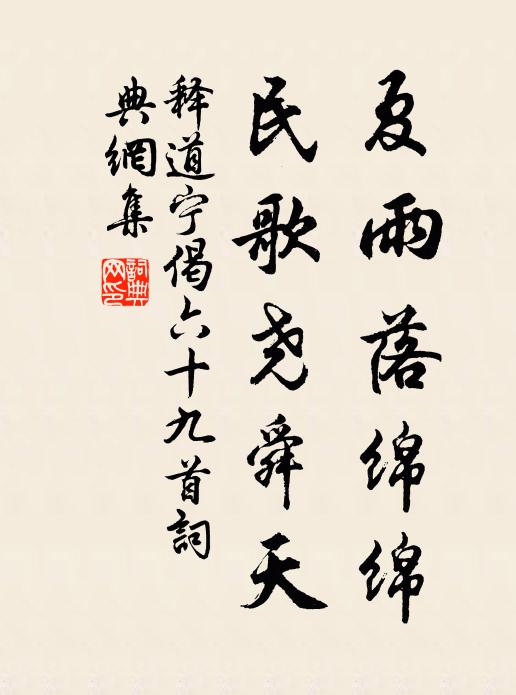 夏雨落绵绵
民歌尧舜天
释道宁偈六十九首詞
典網集
詞典网印